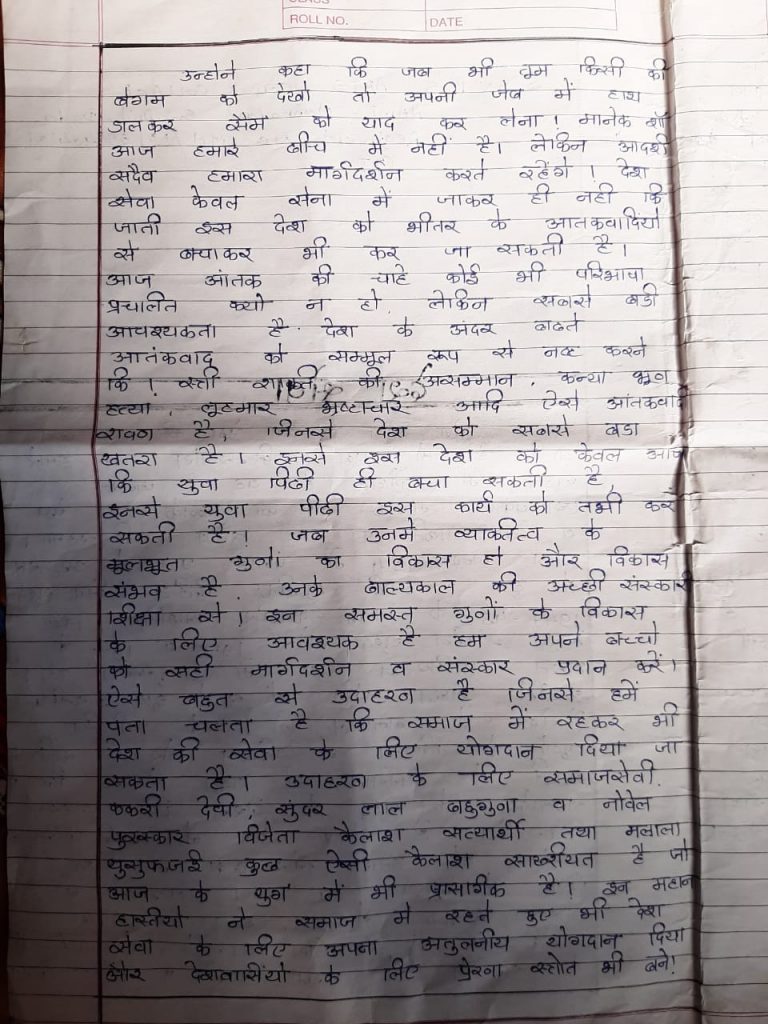 ROLL NO. DATE
उन्होने कहा कि जब भी तुम किसी की
बेगम को देखो तो अपनी जेब में हाथ
डालकर सैम को याद कर लेना। मानेक शॉ
आज हमारे बीच में नहीं है। लेकिन आदर्श
सदैव हमारा मार्गदर्शन करते रहेंगे। देश
सेवा केवल सेना में जाकर ही नही कि
जाती इस देश को भीतर के आतकवादियों
से बचाकर भी कर जा सकती है।
आज आंतक की चाहे कोई भी परिभाषा
प्रचालित क्यो न हो. लेकिन सबसे बडी
आवश्यकता है देश के अंदर बढते
आतंकवाद को सम्मूल रूप से नष्ट करने
कि। स्त्री की असम्मान, कन्या भ्रूण
हत्या, लूटमार भ्रष्टाचार आदि ऐसे आंतकवादी
रावण है, जिनसे देश को सबसे बडा
खतरा है। इनसे इस देश को केवल आज
कि युवा पिढी ही बचा सकती है,
इनसे युवा पीढी इस कार्य को तभी कर
सकती है। जब उनमे व्याक्तित्व के
मूलभूत गुनों का विकास हो और विकास
संभव है. उनके बाल्यकाल की अच्छी संस्कारी
शिक्षा से। इन समस्त गुनों के विकास
के लिए आवश्यक है हम अपने बच्चो
को सही मार्गदर्शन व संस्कार प्रदान करें।
ऐसे बहुत से उदाहरन है जिनसे हमें
पता चलता है कि समाज में रहकर भी
देश की सेवा के लिए योगदान दिया जा
सकता है। उदाहरन के लिए समाजसेवी.
फकरी देवी, सुंदर लाल बहुगुना व नोवेल
पुरस्कार विजेता कैलाश सत्यार्थी तथा मलाला
युसुफजई कुछ ऐसी कैलाश साख्शीयत है जो
आज के युग में भी प्रासागिक है। इन महान
हास्तीयो ने समाज मे रहते हुए भी देश
सेवा के लिए अपना अतुलनीय योगदान दिया
और देशवासियो के लिए प्रेरणा स्त्रोत भी बने!